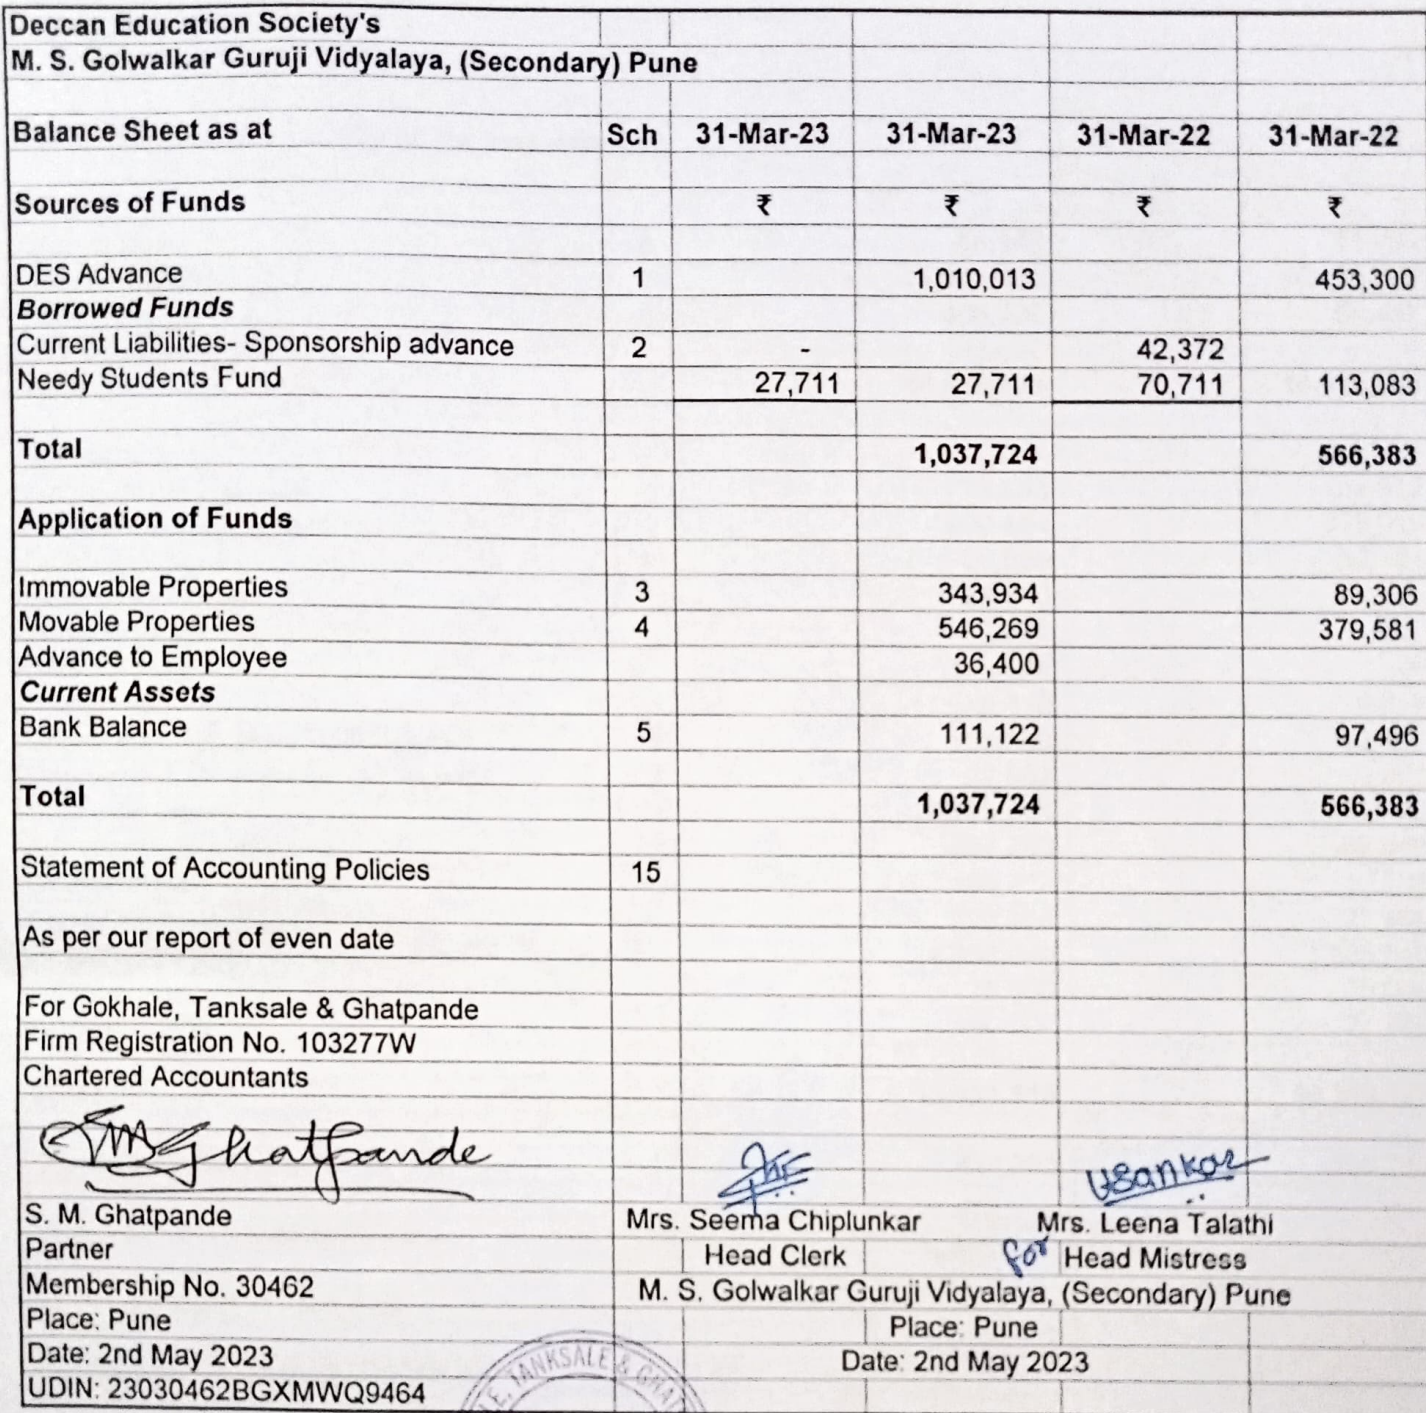 Deccan Education Society's
M. S. Golwalkar Guruji Vidyalaya, (Secondary) Pune
Balance Sheet as at Sch 31-Mar-23 31-Mar-23 31-Mar-22 31-Mar-22
Sources of Funds ₹ ₹ ₹ ₹
DES Advance 1 1,010,013 453,300
Borrowed Funds
Current Liabilities- Sponsorship advance 2 - 42,372
Needy Students Fund 27,711 27,711 70,711 113,083
Total 1,037,724 566,383
Application of Funds
Immovable Properties 3 343,934 89,306
Movable Properties 4 546,269 379,581
Advance to Employee 36,400
Current Assets
Bank Balance 5 111,122 97,496
Total 1,037,724 566,383
Statement of Accounting Policies 15
As per our report of even date
For Gokhale, Tanksale & Ghatpande
Firm Registration No. 103277W
Chartered Accountants
SM Ghatpande
S. M. Ghatpande Mrs. Seema Chiplunkar Mrs. Leena Talathi
Partner Head Clerk for Head Mistress
Membership No. 30462 M. S. Golwalkar Guruji Vidyalaya, (Secondary) Pune
Place: Pune Place: Pune
Date: 2nd May 2023 Date: 2nd May 2023
UDIN: 23030462BGXMWQ9464
TANKSALE &